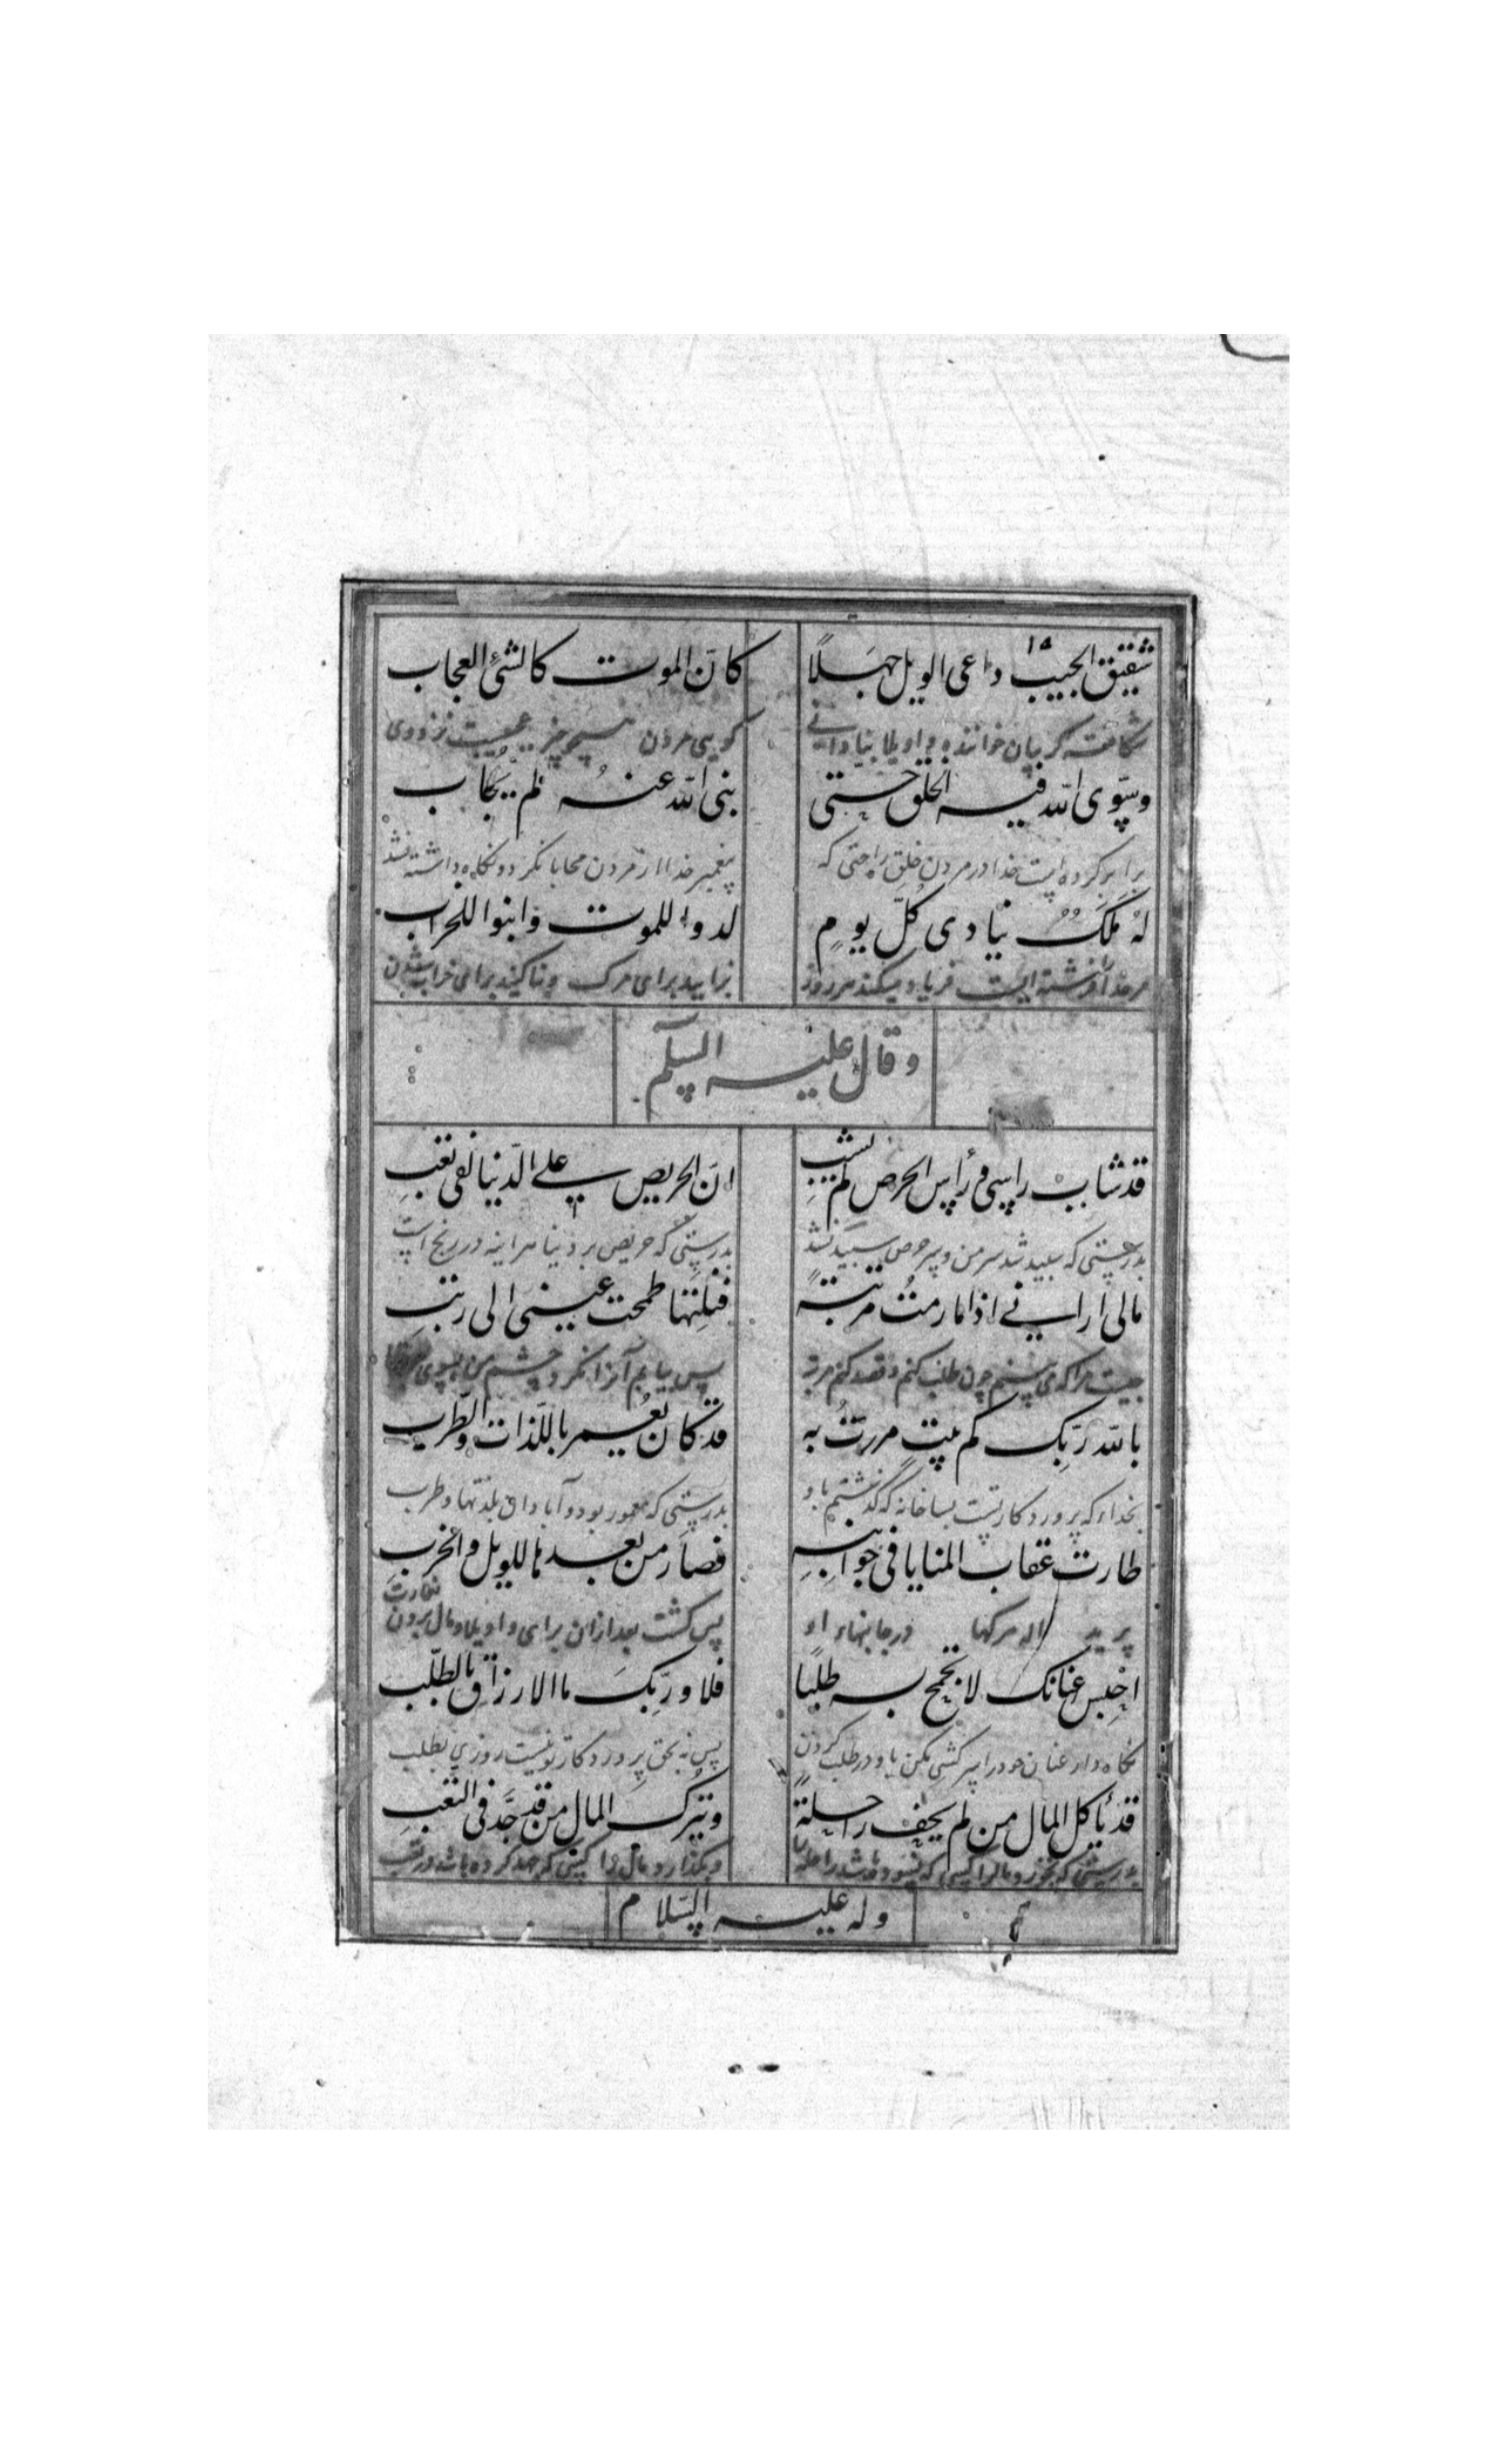 ۱۵
شقیق الجیب داعی الویل جهلاً کانّ الموت کالشئ العجاب
شکافته کریبان خواننده واویلا بنادانی کویی مردن چیز عجیبست
وسوّی الله فیه الخلق حتی نبی الله عنه لم یحاب
برابر کرده است خدا در مردن خلق را حتی که پیغمبر خدا از مردن محابا نکرد و نکاه داشته نشد
له ملک ینادی کلّ یومٍ لدوا للموت وابنوا للخراب
مر خدا را فرشته ایست فریاد میکند هر روز بزایید برای مرک و بنا کنید برای خراب شدن
وقال علیه السلم
قد شاب راسی و رأس الحرص لم یشب انّ الحریص علی الدّنیا لفی تعبِ
بدرستی که سپید شد سر من و سر حرص سپید نشد بدرستی که حریص بر دنیا هر اینه در رنج است
مالی ارانی اذا ما رمتُ مرتبةً فنلتها طمحت عینی الی رتبِ
چیست مرا که می بینم چون طلب کنم و قصد کنم مرتبه پس بیابم آنرا نکرد چشم من بسوی
بالله ربّک کم بیتٍ مررتُ به قد کان یعمر باللّذات والطّرب
بخداء که پروردکار تست بسا خانه که کذشتم باو بدرستی که معمور بود و آبادان بلذتها و طرب
طارت عقاب المنایا فی جوانبهِ فصار من بعدها للویل والخربِ
پرید اله مرکها در جانبهاء او پس کشت بعد ازان برای واویلا و مال بردن
احبس عنانک لا تجمح به طلبًا فلا وربّک ما الارزاق بالطلب
نکاه دار عنان خود را سرکشی مکن باو در طلب کردن پس نه بحق پروردکار تو نیست روزی بطلب
قد یأکل المال من لم یحف راحلةً ویترک المال من قد جدّ فی التعبِ
بدرستی که بخورد مال را کسی که نسوده باشد راحله را و بکذارد مال را کسی که جهد کرده باشد در تعب
وله علیه السّلام